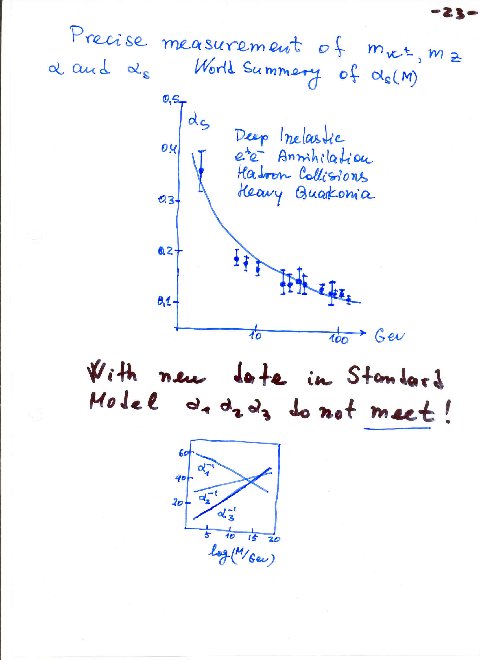 -23-
Precise measurement of m_W±, m_Z
α and α_s World Summery of α_s(M)
0,5
α_s
0,4
Deep Inelastic
e⁺e⁻ Annihilation
Hadron Collisions
Heavy Quarkonia
0.3
0.2
0,1
10 100 Gev
With new date in Standard
Model α₁ α₂ α₃ do not meet!
60
α₁⁻¹
40
α₂⁻¹
20
α₃⁻¹
5 10 15 20
log(M/Gev)